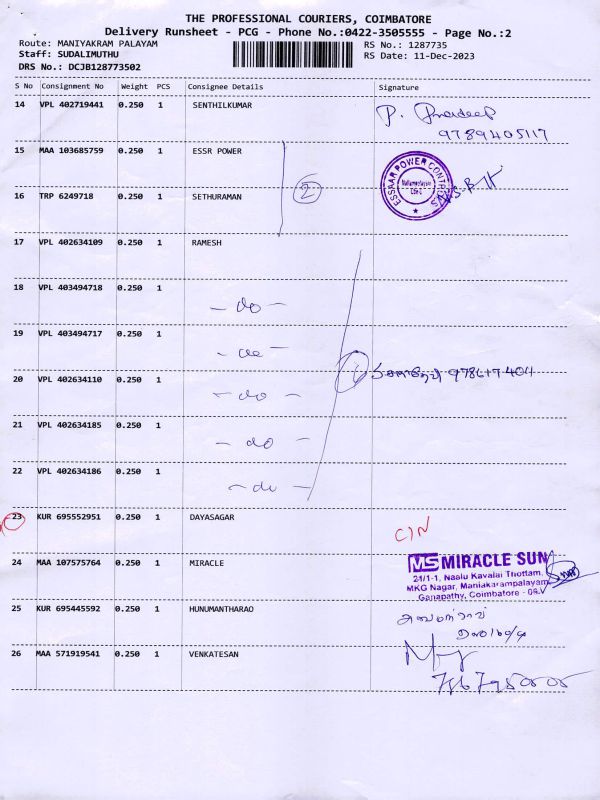 THE PROFESSIONAL COURIERS, COIMBATORE
Delivery Runsheet - PCG - Phone No.:0422-3505555 - Page No.:2
Route: MANIYAKRAM PALAYAM
Staff: SUDALIMUTHU
DRS No.: DCJB128773502
RS No.: 1287735
RS Date: 11-Dec-2023
S No Consignment No Weight PCS Consignee Details Signature
14 VPL 402719441 0.250 1 SENTHILKUMAR P. Pradeep
9789405117
15 MAA 103685759 0.250 1 ESSR POWER
2
ESSAAR POWER CONTROLS
16 TRP 6249718 0.250 1 SETHURAMAN
17 VPL 402634109 0.250 1 RAMESH
18 VPL 403494718 0.250 1
- do -
19 VPL 403494717 0.250 1
- do -
20 VPL 402634110 0.250 1
- do -
21 VPL 402634185 0.250 1
- do -
22 VPL 402634186 0.250 1
- do -
23 KUR 695552951 0.250 1 DAYASAGAR
C/N
24 MAA 107575764 0.250 1 MIRACLE
MS MIRACLE SUN
21/1-1, Naalu Kavalai Thottam,
MKG Nagar, Maniakarampalayam
Ganapathy, Coimbatore -
25 KUR 695445592 0.250 1 HUNUMANTHARAO
26 MAA 571919541 0.250 1 VENKATESAN